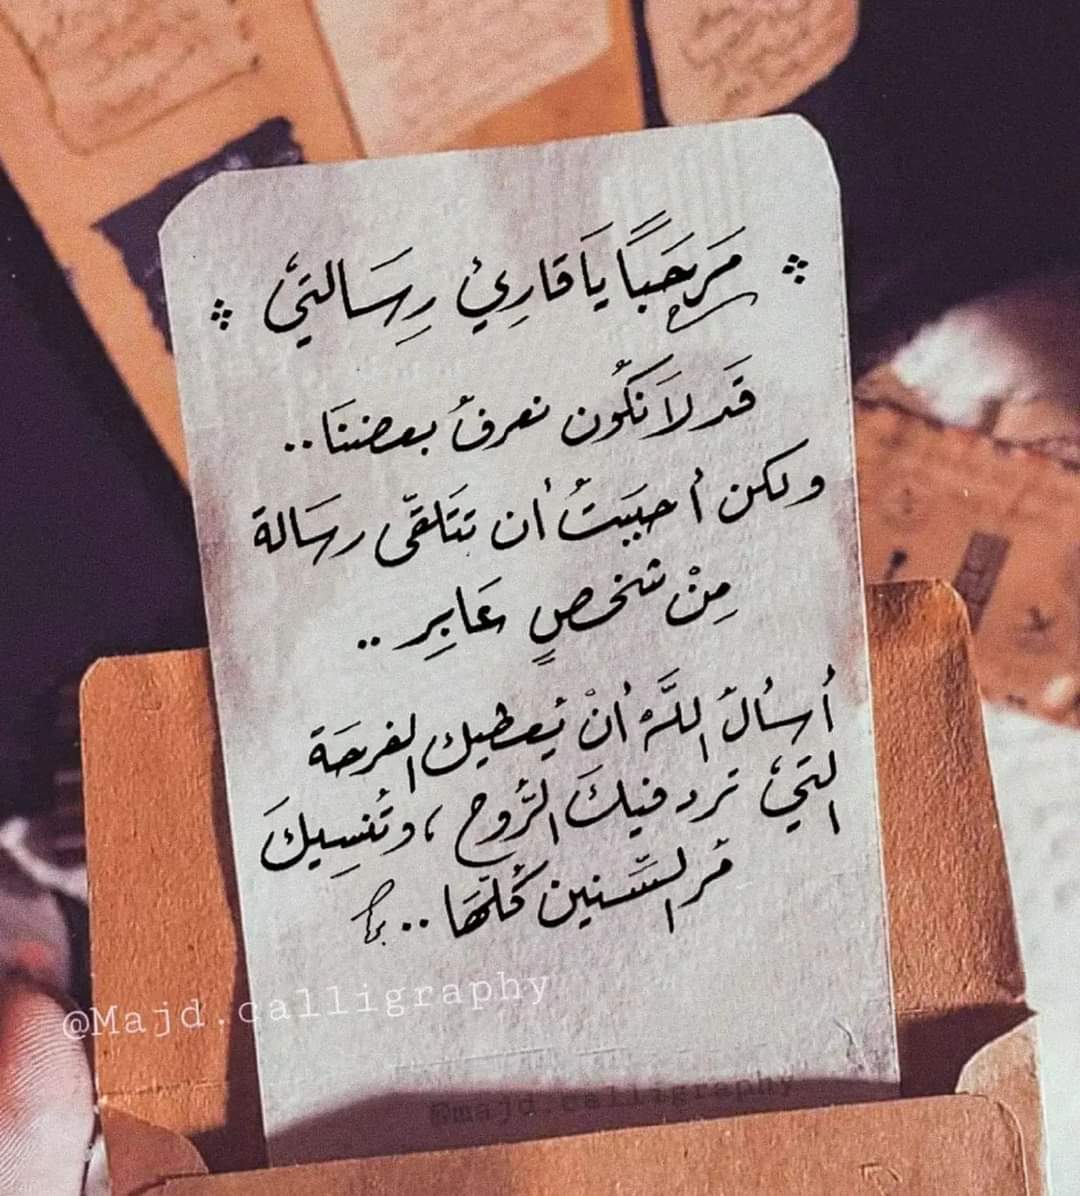 مَرحَبًا يَا قارِئ رِسَالتيْ
قَد لَا نَكُون نعرفُ بعضنَا..
ولكن أحبَبتُ أن تتَلقّى رسَالة
مِنْ شخصٍ عَابِر ..
أسألُ اللَّهْ أنْ يُعطيك الفرحَة
التيْ ترد فيكَ الرُّوح ، وتُنسِيكَ
مُر السّنين كُلّهَا ..
@Majd.calligraphy
@majd.calligraphy